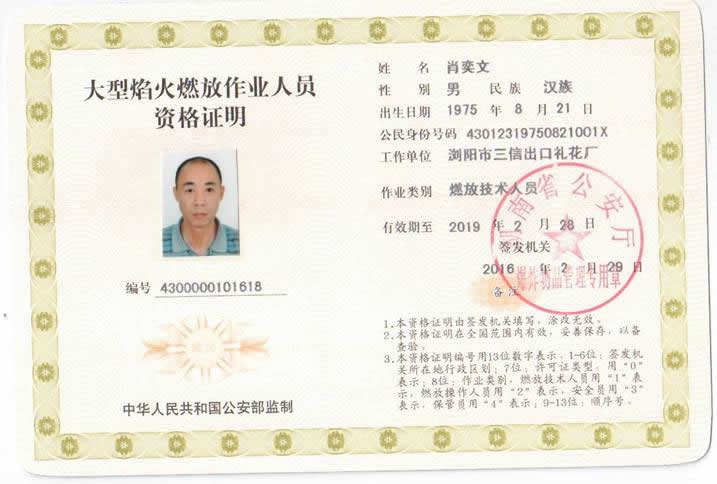 大型焰火燃放作业人员
资格证明
编号 4300000101618
中华人民共和国公安部监制
姓 名 肖奕文
性 别 男 民 族 汉族
出生日期 1975 年 8 月 21 日
公民身份号码 43012319750821001X
工作单位 浏阳市三信出口礼花厂
作业类别 燃放技术人员
有效期至 2019 年 2 月 28 日
签发机关
2016 年 2 月 29 日
湖南省公安厅
爆炸物品管理专用章
备注
1.本资格证明由签发机关填写，涂改无效。
2.本资格证明在全国范围内有效，妥善保存，以备
查验。
3.本资格证明编号用13位数字表示，1-6位：签发机
关所在地行政区划；7位：许可证类型，用“0”
表示；8位：作业类别，燃放技术人员用“1”表
示，燃放操作人员用“2”表示，安全员用“3”
表示，保管员用“4”表示；9-13位：顺序号。